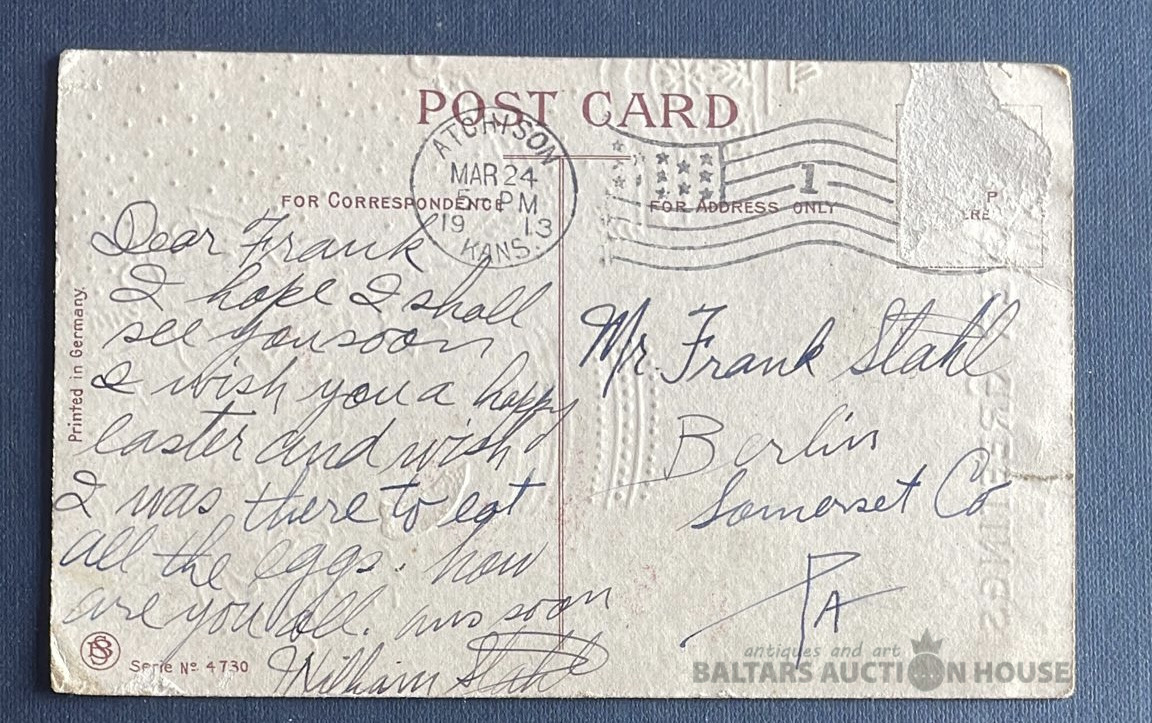 POST CARD
ATCHISON
MAR 24
5 PM
19 13
KANS.
1
FOR CORRESPONDENCE
FOR ADDRESS ONLY
P
ERE
Dear Frank
I hope I shall
see you soon
I wish you a happy
easter and wish
I was there to eat
all the eggs. how
are you all. ans soon
William Stahl
Mr. Frank Stahl
Berlin
Somerset Co
PA
Printed in Germany.
Serie No. 4730
GREETINGS
antiques and art
BALTARS AUCTION HOUSE